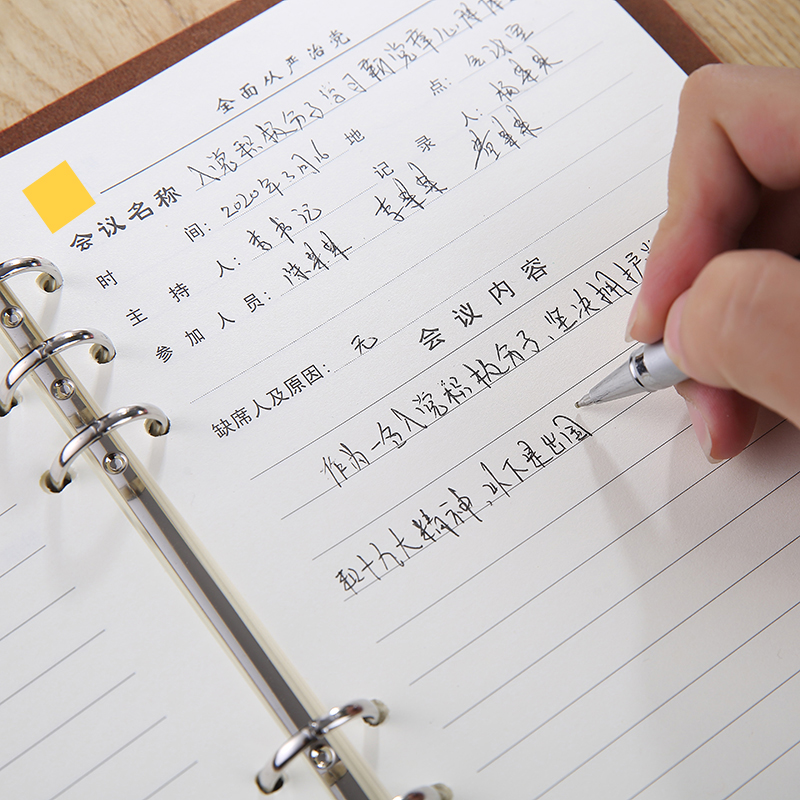 全面从严治党
会议名称 入党积极分子学习新党章心得
时 间: 2020年3月16 地 点: 会议室
主 持 人: 李书记 记 录 人: 杨某某
参 加 人 员: 陈某某 李某某 黄某某
缺席人及原因: 无
会 议 内 容
作为一名入党积极分子、坚决拥护
和十九大精神,以下是